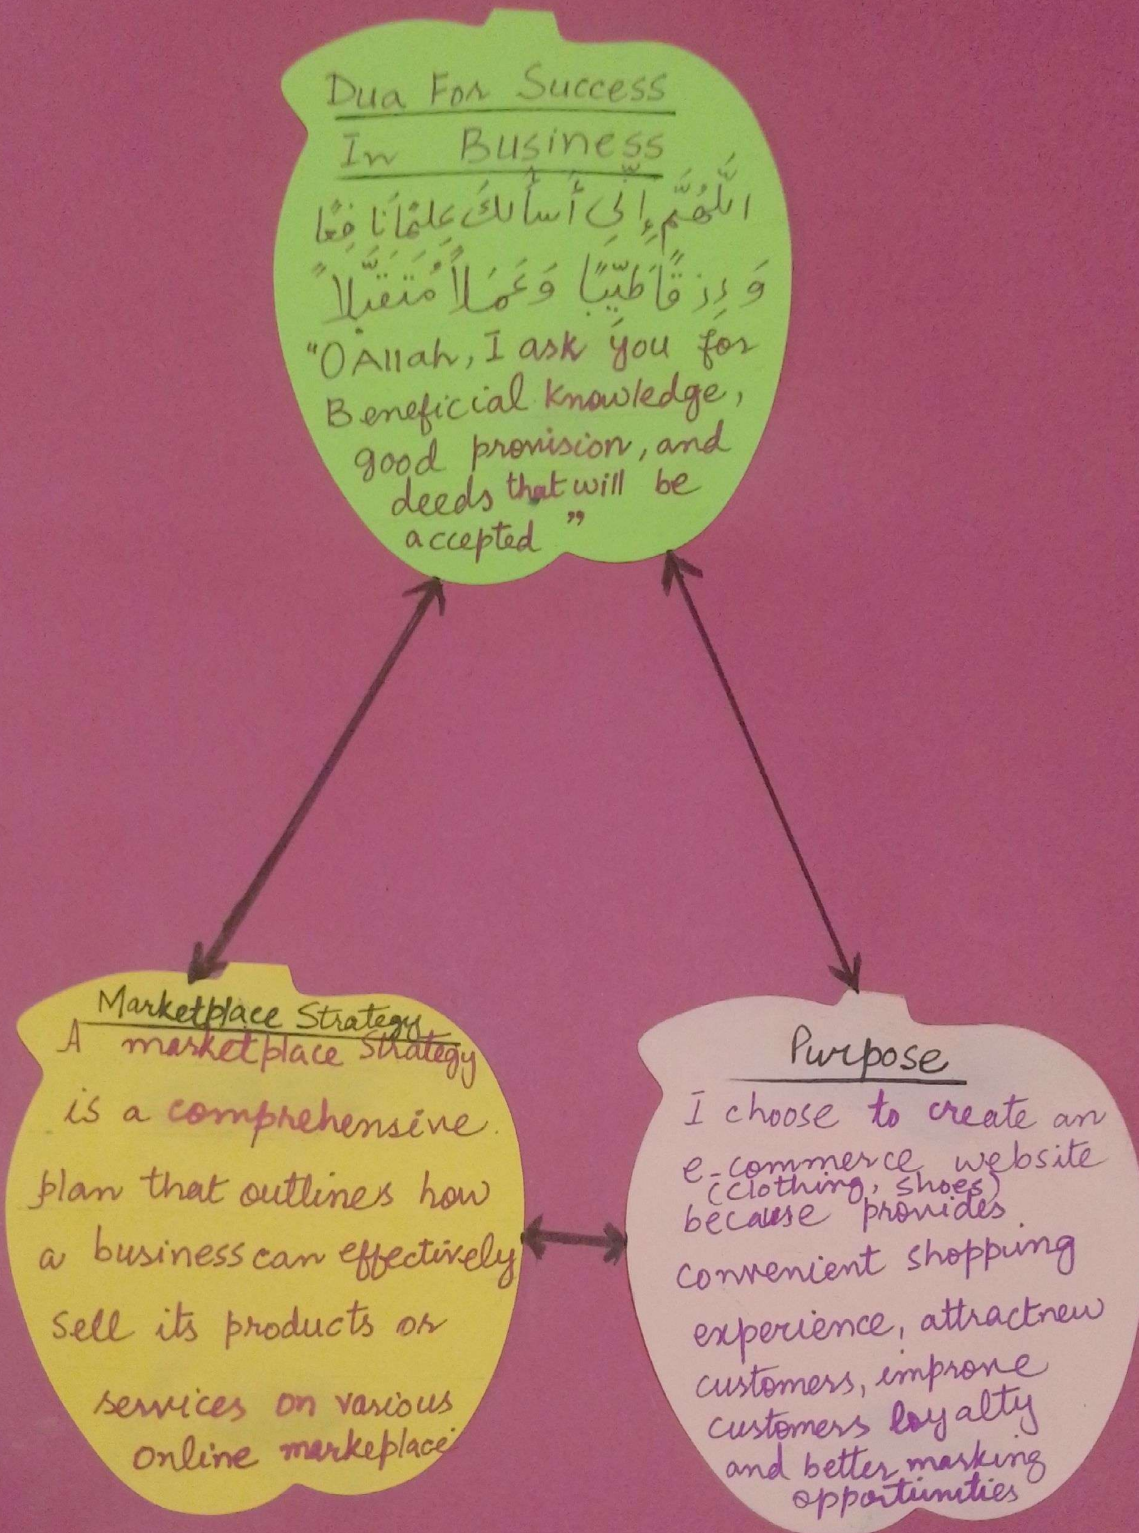 Dua For Success
In Business
اللَّهُمَّ إِنِّي أَسأَلُكَ عِلمًا نَا فِعًا
وَ رِزقًا طَيِّبًا وَ عَمَلاً مُتَقَبَّلاً
"O Allah, I ask You for
Beneficial knowledge,
good provision, and
deeds that will be
accepted"
Marketplace Strategy
A marketplace Strategy
is a comprehensive
plan that outlines how
a business can effectively
sell its products or
services on various
online markeplace
Purpose
I choose to create an
e-commerce website
(clothing, shoes)
because provides
convenient shopping
experience, attract new
customers, improve
customers loyalty
and better marking
opportunities